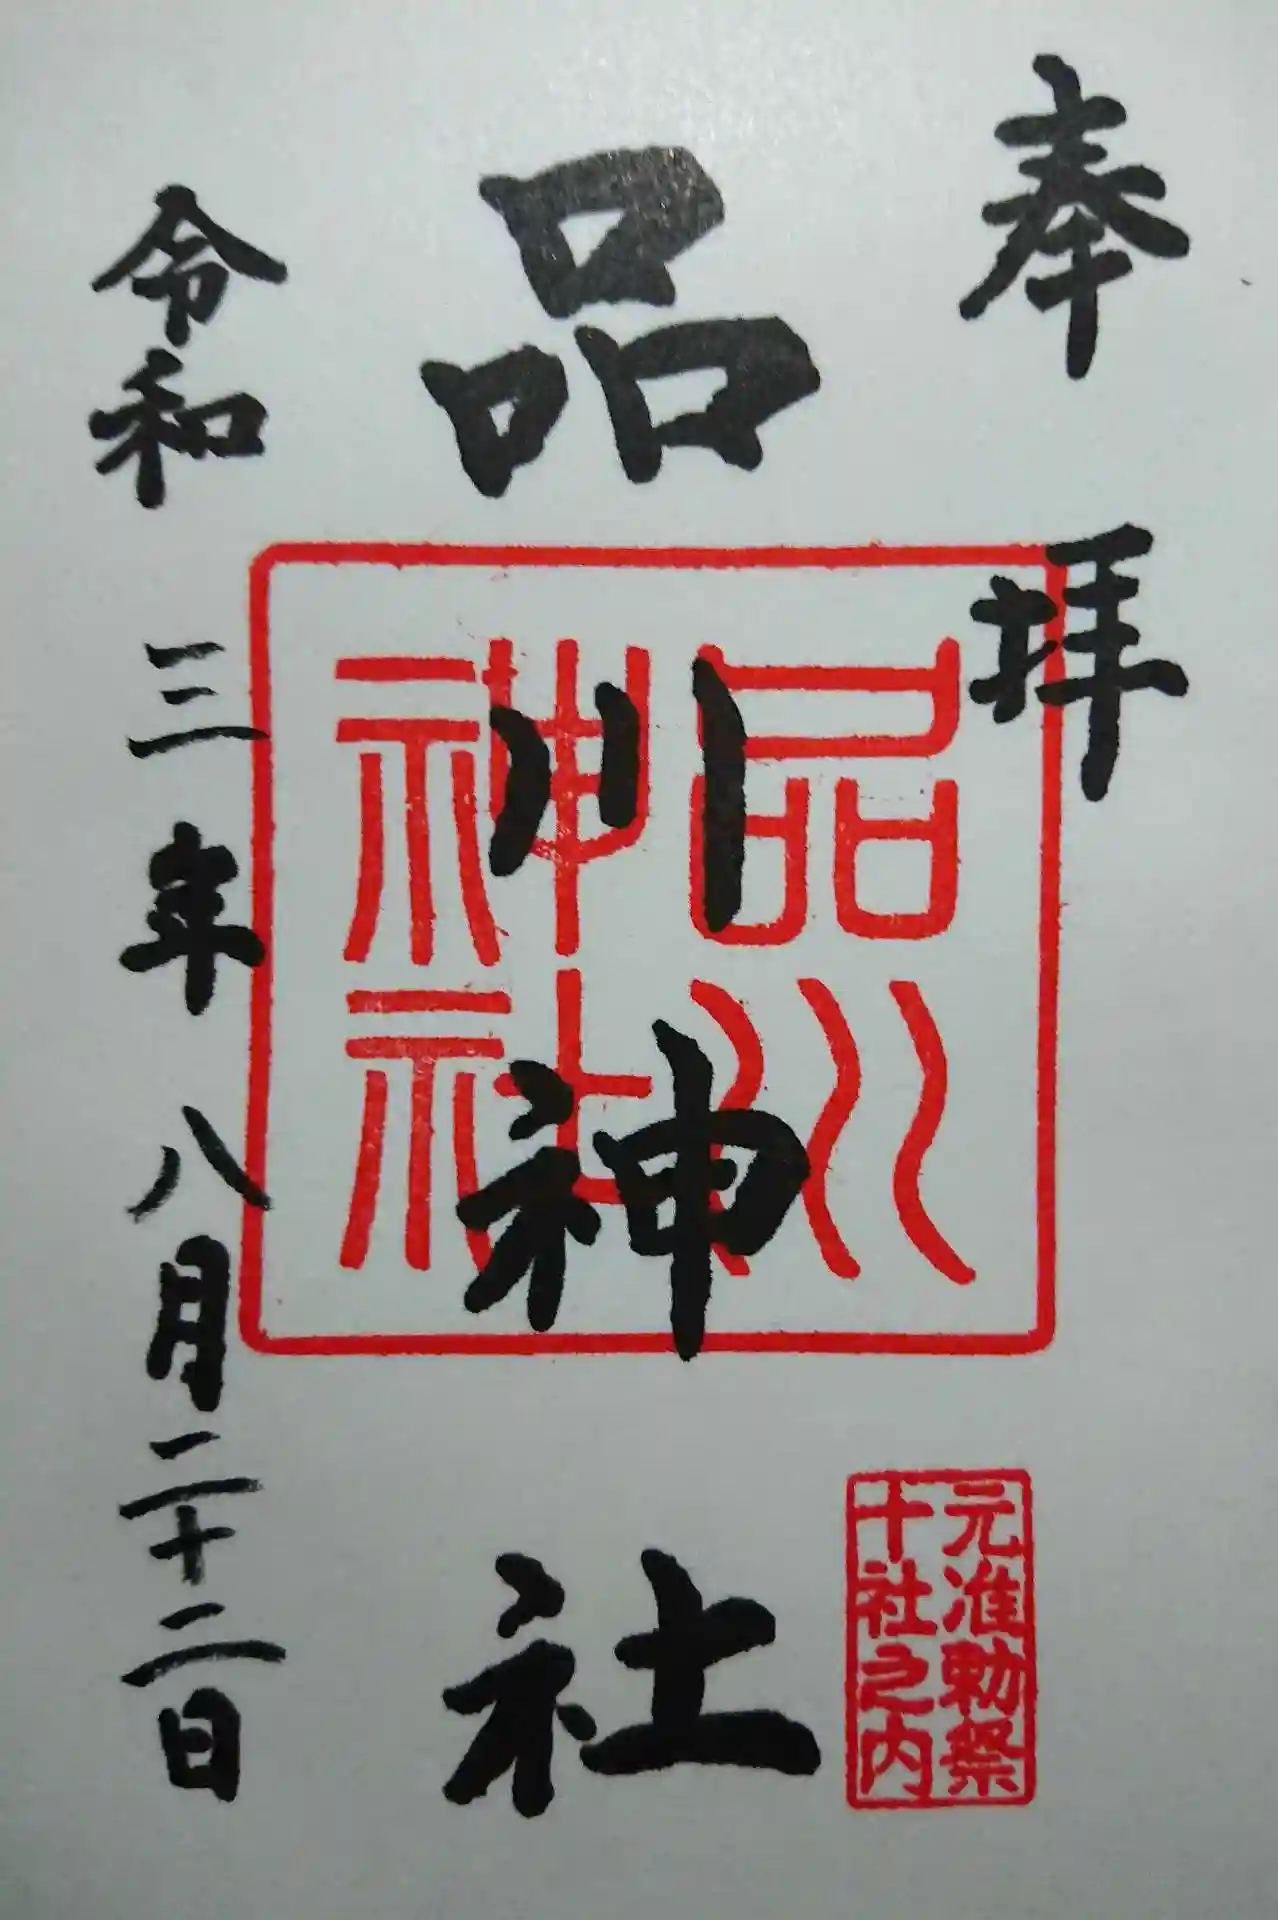 奉拝
品川神社
品川
神社
元准勅祭
十社之内
令和三年八月二十二日